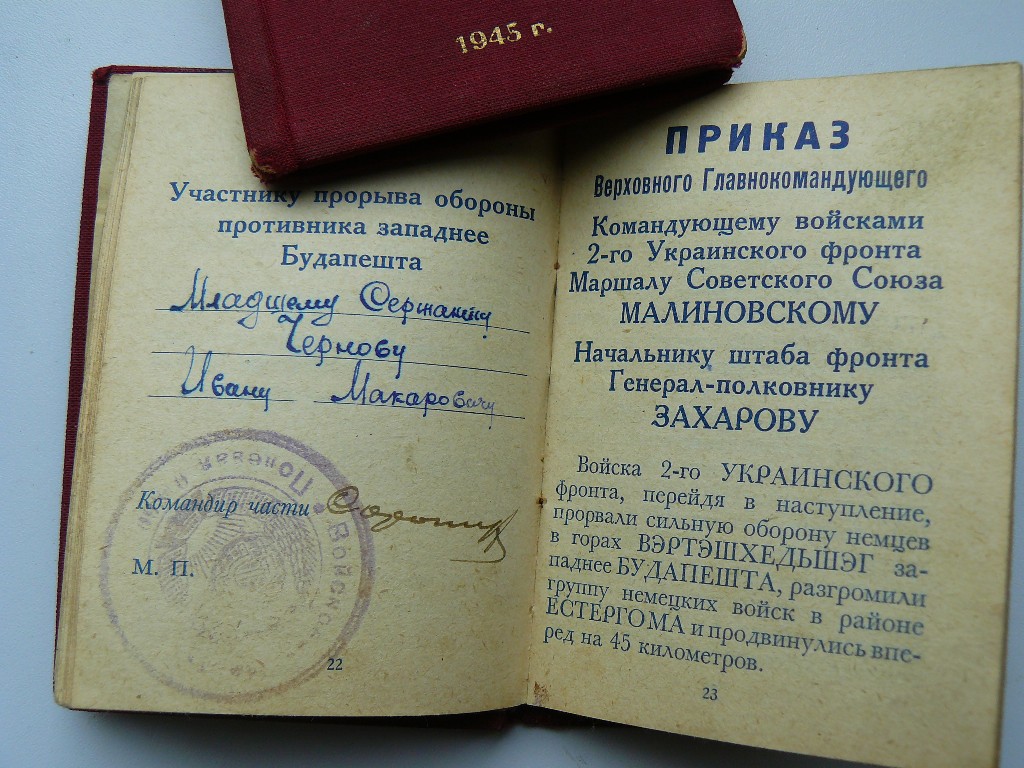 1945 г.
Участнику прорыва обороны
противника западнее
Будапешта
Младшему Сержанту
Чернову
Ивану Макаровичу
Командир части
М. П.
Полевая
Войсков
22
ПРИКАЗ
Верховного Главнокомандующего
Командующему войсками
2-го Украинского фронта
Маршалу Советского Союза
МАЛИНОВСКОМУ
Начальнику штаба фронта
Генерал-полковнику
ЗАХАРОВУ
Войска 2-го УКРАИНСКОГО
фронта, перейдя в наступление,
прорвали сильную оборону немцев
в горах ВЭРТЭШХЕДЬШЭГ за-
паднее БУДАПЕШТА, разгромили
группу немецких войск в районе
ЕСТЕРГОМА и продвинулись впе-
ред на 45 километров.
23